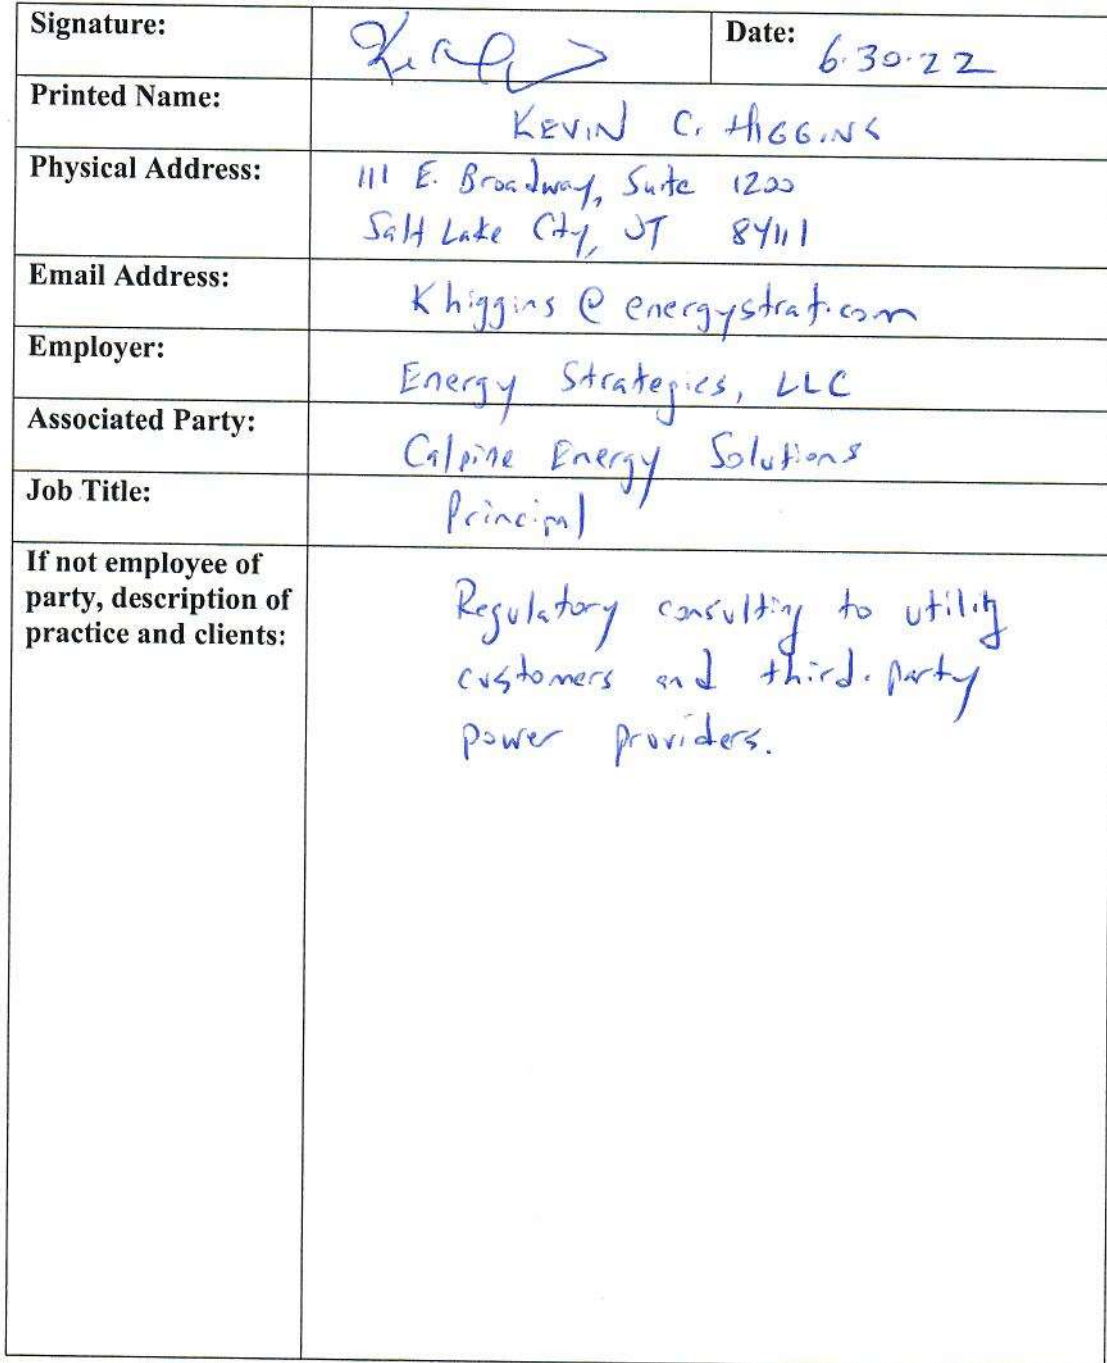 Signature:
Date: 6.30.22
Printed Name: KEVIN C. HIGGINS
Physical Address: 111 E. Broadway, Suite 1200
Salt Lake City, UT 84111
Email Address: Khiggins@energystrat.com
Employer: Energy Strategies, LLC
Associated Party: Calpine Energy Solutions
Job Title: Principal
If not employee of
party, description of
practice and clients:
Regulatory consulting to utility
customers and third-party
power providers.